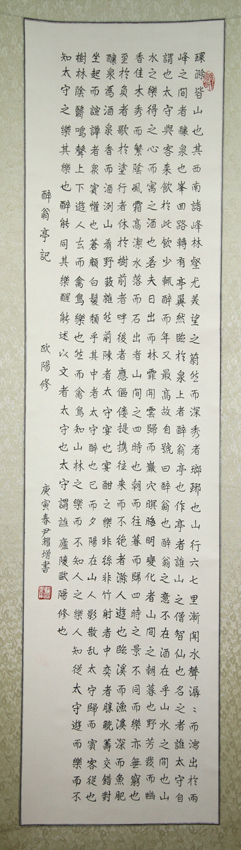 環滁皆山也其西南諸峰林壑尤美望之蔚然而深秀者瑯琊也山行六七里漸聞水聲潺潺而瀉出於兩
峰之間者釀泉也峯回路轉有亭翼然臨於泉上者醉翁亭也作亭者誰山之僧智仙也名之者誰太守自
謂也太守與客來飲於此飲少輒醉而年又最高故自號曰醉翁也醉翁之意不在酒在乎山水之間也山
水之樂得之心而寓之酒也若夫日出而林霏開雲歸而巖穴暝晦明變化者山間之朝暮也野芳發而幽
香佳木秀而繁陰風霜高潔水落而石出者山間之四時也朝而往暮而歸四時之景不同而樂亦無窮也
至於負者歌於塗行者休於樹前者呼後者應傴僂提攜往來而不絕者滁人遊也臨溪而漁溪深而魚肥
釀泉為酒泉香而酒洌山肴野蔌雜然前陳者太守宴也宴酣之樂非絲非竹射者中奕者勝觥籌交錯
坐起而諠譁者眾賓懽也蒼顏白髮頹乎其中者太守醉也已而夕陽在山人影散亂太守歸而賓客從也
樹林陰翳鳴聲上下遊人去而禽鳥樂也然而禽鳥知山林之樂而不知人之樂人知從太守遊而樂而不
知太守之樂其樂也醉能同其樂醒能述以文者太守也太守謂誰廬陵歐陽修也
醉翁亭記 歐陽修
庚寅春尹湘增書